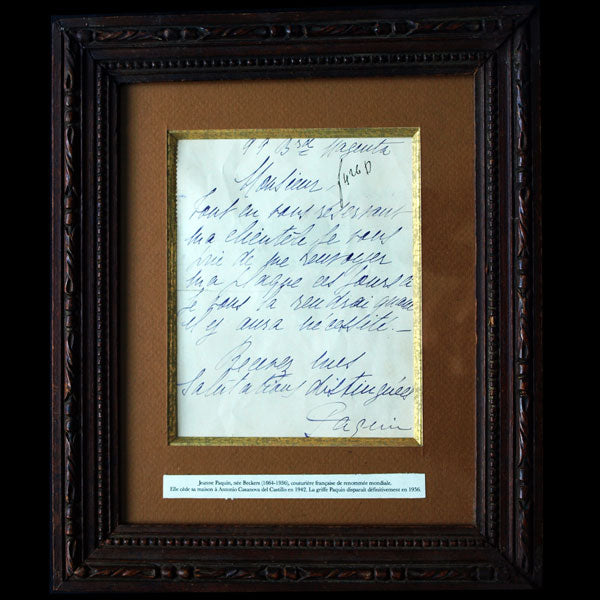 99 Brd Magenta
Monsieur,
426 D
tout en vous réservant
ma clientèle je vous
prie de me renvoyer
ma plaque ces jours ci
je vous la rendrai quand
il y aura nécessité._
Recevez mes
salutations distinguées
Paquin
Jeanne Paquin, née Beckers (1864-1936), couturière française de renommée mondiale.
Elle cède sa maison à Antonio Canovas del Castillo en 1942. La griffe Paquin disparaît définitivement en 1956.